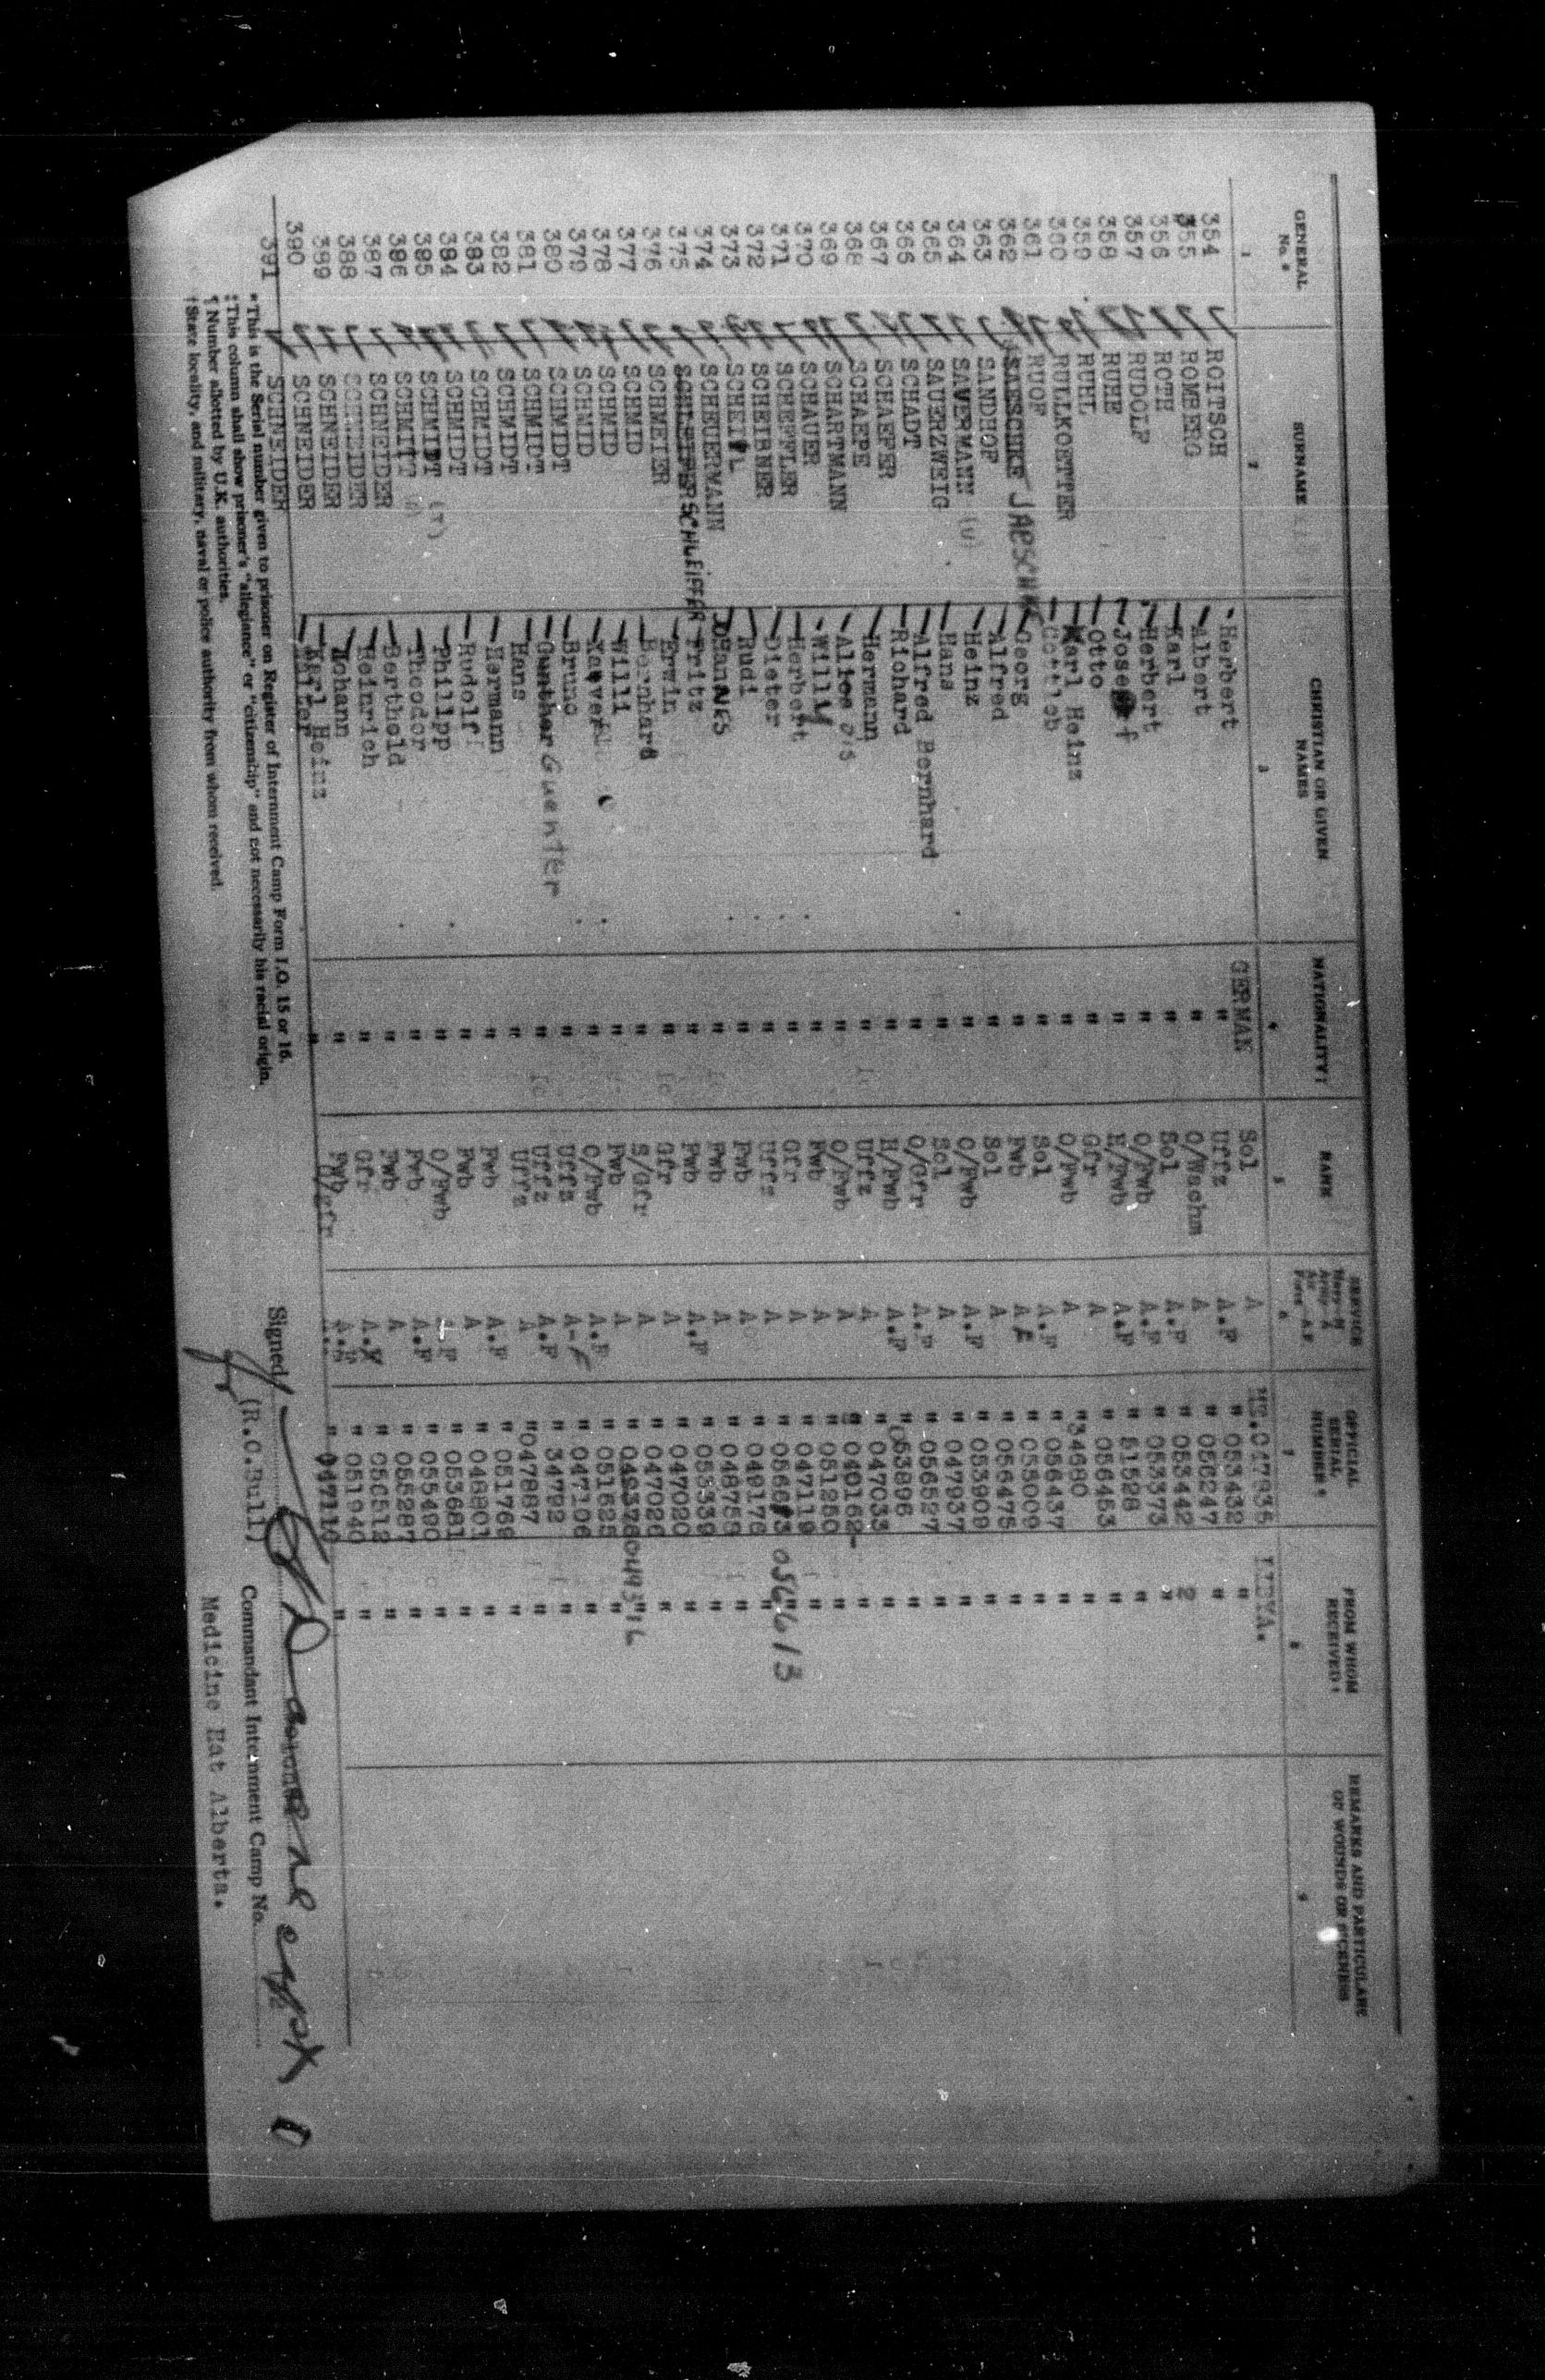 GENERAL No. * SURNAME CHRISTIAN OR GIVEN NAMES NATIONALITY‡ RANK SERVICE Navy—N Army—A Air Force—A.F. OFFICIAL SERIAL NUMBER ¶ FROM WHOM RECEIVED† REMARKS AND PARTICULARS OF WOUNDS OR SICKNESS
1 2 3 4 5 6 7 8 9
354 ROITSCH Herbert GERMAN Sol A ME.047935 LIBYA.
355 ROMBERG Albert " Uffz A.F " 053432 "
356 ROTH Karl " O/Wachm A " 056247 "
357 RUDOLF Herbert " Sol A.F " 053442 2
358 RUHE Josef " O/Fwb A.F " 053373 "
359 RUHL Otto " H/Fwb A.F " 51528 "
360 RULLKOETTER Karl Heinz " Gfr A " 056453 "
361 RUOF Gottlob " O/Fwb A " 34680 "
362 SAESCHKE JAESCHKE Georg " Sol A.F " 056437 "
363 SANDHOF Alfred " Fwb A F " 055009 "
364 SAVERMANN (U) Heinz " Sol A " 056475 "
365 SAUERZWEIG Hans " O/Fwb A.F " 053909 "
366 SCHADT Alfred Bernhard " Sol A " 047937 "
367 SCHAEFER Richard " O/Gfr A.F " 056527 "
368 SCHAEPE Hermann " H/Fwb A.F " 053896 "
369 SCHARTMANN Alios ois " Uffz A " 047033 "
370 SCHAUER Willi " O/Fwb A " 040162 "
371 SCHEFFLER Herbert " Fwb A " 051250 "
372 SCHEIBNER Dieter " Gfr A " 047119 "
373 SCHEITL Rudi " Uffz A " 056613 056613 "
374 SCHEUERMANN JOHANNES " Fwb A " 049176 "
375 SCHLEIFER SCHLEIFFER Fritz " Fwb A " 048759 "
376 SCHMEIER Erwin " Fwb A.F " 053339 "
377 SCHMID Bernhard " Gfr A " 047020 "
378 SCHMID Willi " S/Gfr A " 047026 "
379 SCHMID Xaver " Fwb A " 049376 "
380 SCHMIDT Bruno " O/Fwb A.F " 051525 "
381 SCHMIDT Gunther Guenter " Uffz A-F " 047106 "
382 SCHMIDT Hans " Uffz A.F " 34792 "
383 SCHMIDT Hermann " Uffz A " 047887 "
384 SCHMIDT Rudolf " Fwb A.F " 051769 "
385 SCHMIDT (T) Philipp " Fwb A " 048801 "
386 SCHMITT Theodor " O/Fwb A.F " 053681 "
387 SCHNEIDER Berthold " Fwb A.F " 055490 "
388 SCHNEIDER Heinrich " Fwb A " 055287 "
389 SCHNEIDER Johann " Gfr A.F " 050512 "
390 SCHNEIDER Karl Heinz " Fwb A.F " 051940 "
391 SCHNEIDER Walter " O/gfr " 047110 "
*This is the Serial number given to prisoner on Register of Internment Camp Form I.O. 15 or 16.
‡This column shall show prisoner's "allegiance" or "citizenship" and not necessarily his racial origin.
¶Number allotted by U.K. authorities.
†State locality, and military, naval or police authority from whom received.
Signed
(R.O.Bull) Commandant Internment Camp No.
Medicine Hat Alberta.